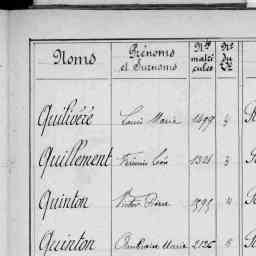 Noms Prénoms et Surnoms Nos matricules Nº du
Quilivéré Louis Marie 1499 3
Quillément Léon 1321 3
Quinton Victor Pierre 1595 4
Quinton Marie 2126 5